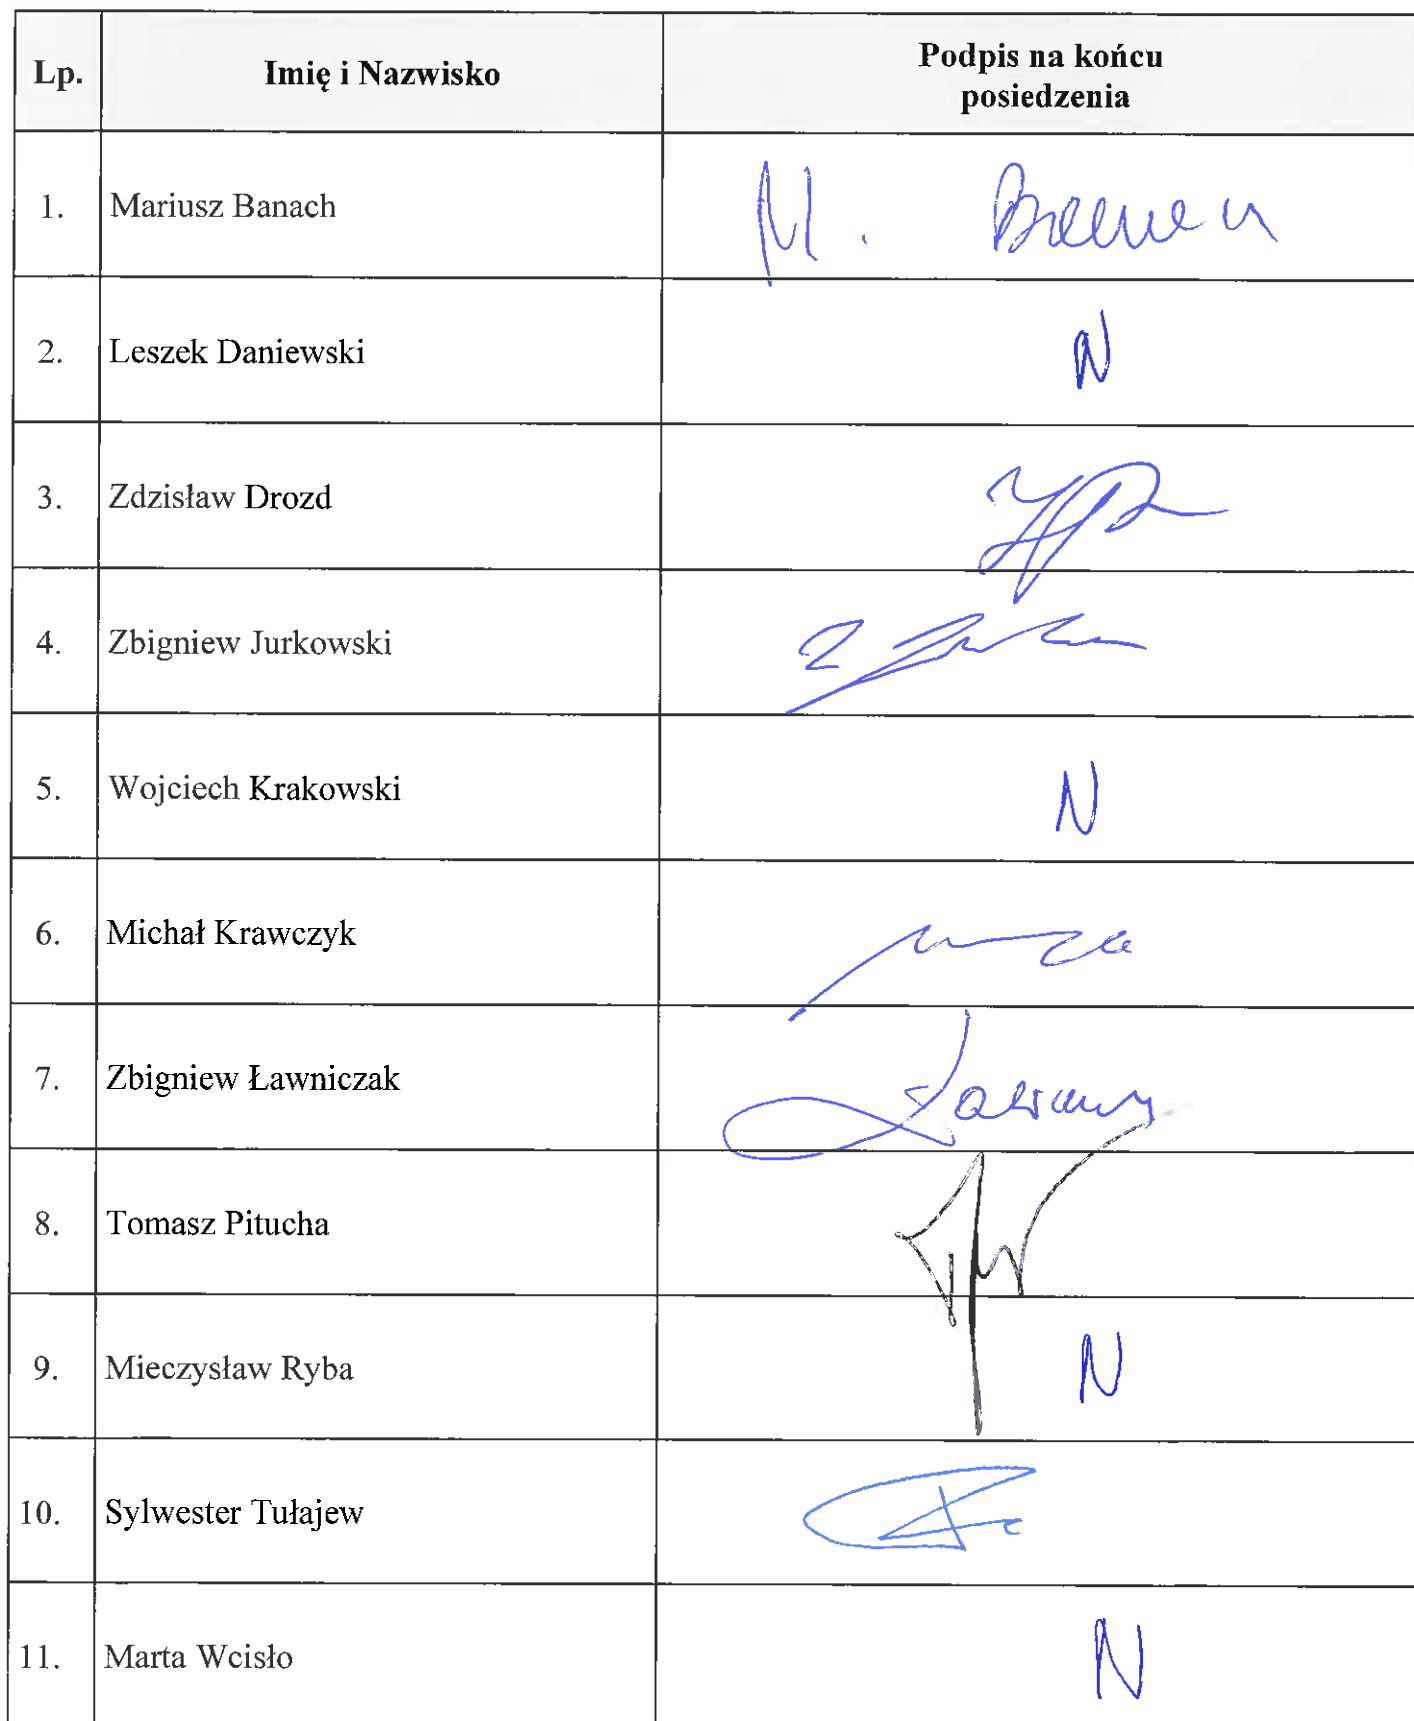 Lp. Imię i Nazwisko Podpis na końcu
posiedzenia
1. Mariusz Banach M.
2. Leszek Daniewski N
3. Zdzisław Drozd
4. Zbigniew Jurkowski
5. Wojciech Krakowski N
6. Michał Krawczyk
7. Zbigniew Ławniczak
8. Tomasz Pitucha
9. Mieczysław Ryba N
10. Sylwester Tułajew
11. Marta Wcisło N